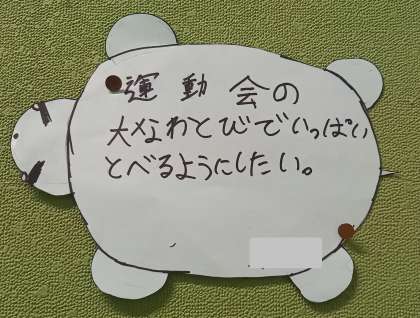 運動会の
大なわとびでいっぱい
とべるようにしたい。